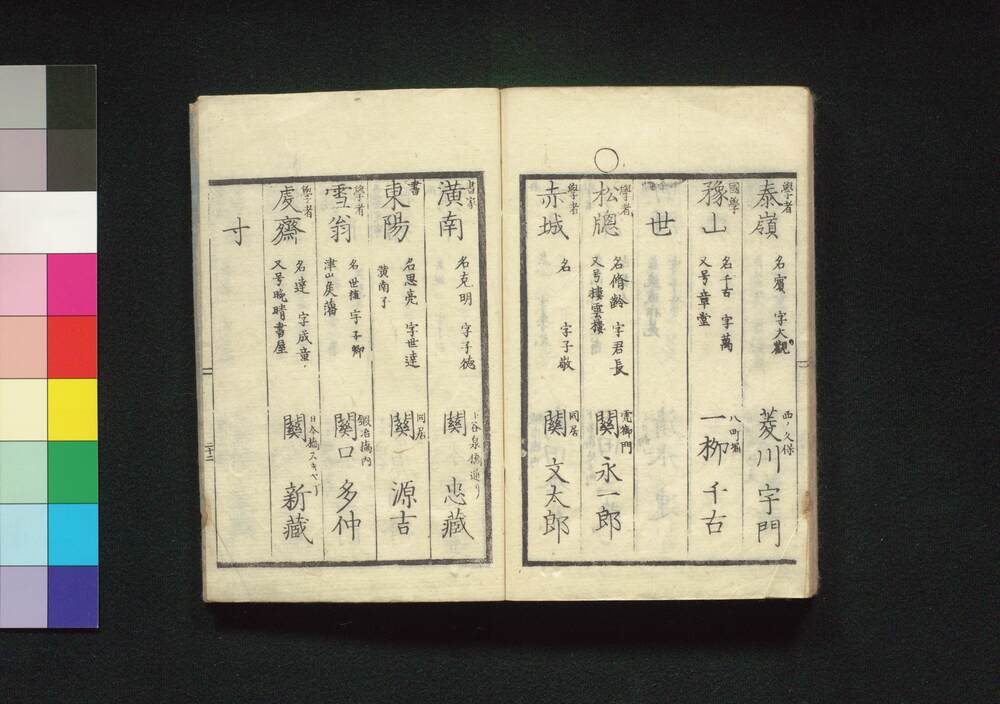 學者
泰嶺
名賓 字大觀
西ノ久保
菱川宇門
國學
豫山
名千古 字萬
又号章堂
八町堀
一柳千古
世
學者
松窻
名脩齡 字君長
又号樓雲樓
虎御門
關永一郎
學者
赤城
名 字子敬
同居
關文太郎
書家
潢南
名克明 字子德
下谷泉橋通り
關忠藏
書
東陽
名思亮 字世達
潢南子
同居
關源吉
學者
雪翁
名世植 字子卿
津山矦藩
鍛冶橋内
關口多仲
學者
虔齋
名達 字成章
又号晚晴書屋
日本橋
關新藏
寸
二十二